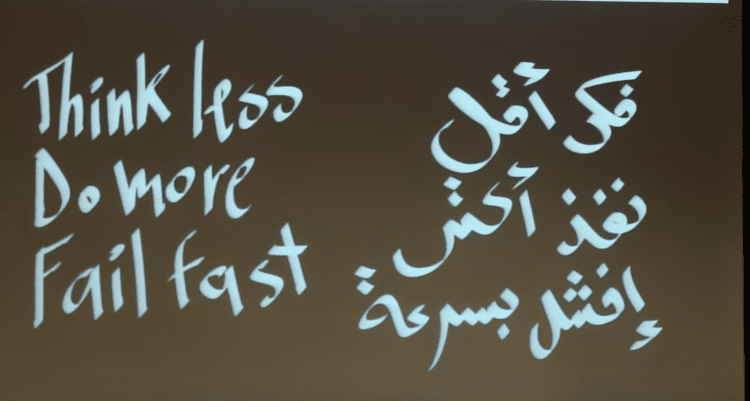 Think less
Do more
Fail fast
فكر أقل
نفذ أكثر
إفشل بسرعة